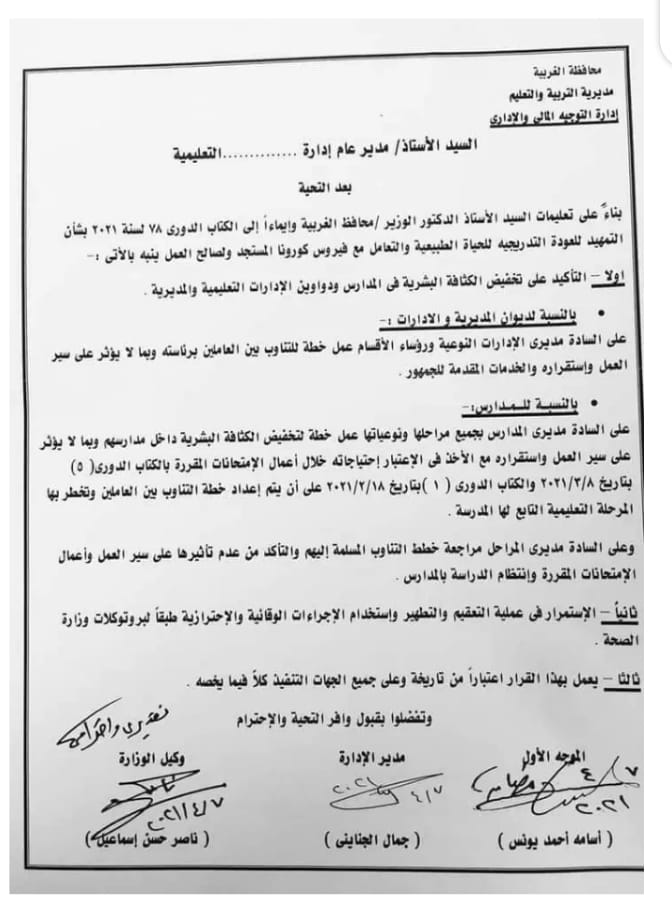 محافظة الغربية
مديرية التربية والتعليم
إدارة التوجيه المالى والإدارى
السيد الأستاذ/ مدير عام إدارة ..............التعليمية
بعد التحية
بناءً على تعليمات السيد الأستاذ الدكتور الوزير /محافظ الغربية وإيماءاً إلى الكتاب الدورى ٧٨ لسنة ٢٠٢١ بشأن
التمهيد للعودة التدريجيه للحياة الطبيعية والتعامل مع فيروس كورونا المستجد ولصالح العمل ينبه بالأتى :-
اولا – التأكيد على تخفيض الكثافة البشرية فى المدارس ودواوين الإدارات التعليمية والمديرية .
• بالنسبة لديوان المديرية و الادارات :-
على السادة مديرى الإدارات النوعية ورؤساء الأقسام عمل خطة للتناوب بين العاملين برئاسته وبما لا يؤثر على سير
العمل وإستقراره والخدمات المقدمة للجمهور .
• بالنسبة للمدارس:-
على السادة مديرى المدارس بجميع مراحلها ونوعياتها عمل خطة لتخفيض الكثافة البشرية داخل مدارسهم وبما لا يؤثر
على سير العمل واستقراره مع الأخذ فى الإعتبار إحتياجاته خلال أعمال الإمتحانات المقررة بالكتاب الدورى( ٥ )
بتاريخ ٢٠٢١/٣/٨ والكتاب الدورى ( ١ )بتاريخ ٢٠٢١/٢/١٨ على أن يتم إعداد خطة التناوب بين العاملين وتخطر بها
المرحلة التعليمية التابع لها المدرسة .
وعلى السادة مديرى المراحل مراجعة خطط التناوب المسلمة إليهم والتأكد من عدم تأثيرها على سير العمل وأعمال
الإمتحانات المقررة وإنتظام الدراسة بالمدارس .
ثانياً – الإستمرار فى عملية التعقيم والتطهير وإستخدام الإجراءات الوقائية والإحترازية طبقاً لبروتوكلات وزارة
الصحة .
ثالثا – يعمل بهذا القرار اعتباراً من تاريخة وعلى جميع الجهات التنفيذ كلاً فيما يخصه .
وتفضلوا بقبول وافر التحية والإحترام
الموجه الأول
مدير الإدارة
وكيل الوزارة
٤/٧
٢٠٢١
٢٠٢١
٤/٧
٢٠٢١/٤/٧
( أسامه أحمد يونس )
( جمال الجناينى )
( ناصر حسن إسماعيل )